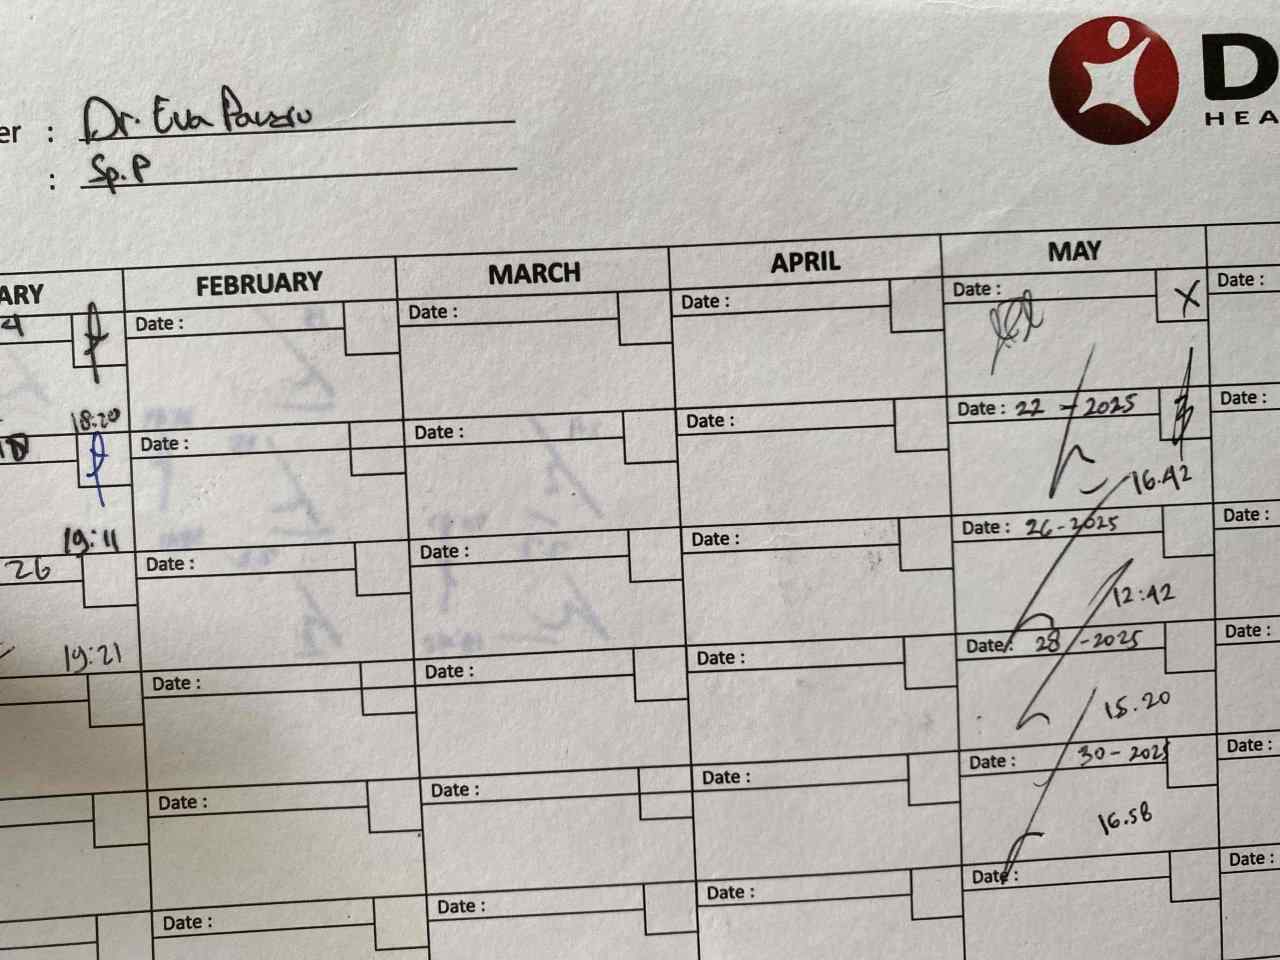 er : Dr. Eva
: Sp.P
D
HEA
ARY FEBRUARY MARCH APRIL MAY
4 Date : Date : Date : Date : X Date :
18:20
Date : Date : Date : Date : 22 - 2025 Date :
19:11 16.42
26 Date : Date : Date : Date : 26-2025 Date :
19:21 12:42
Date : Date : Date : Date : 28 -2025 Date :
15.20
Date : Date : Date : Date : 30-2025 Date :
16.58
Date : Date : Date : Date : Date :